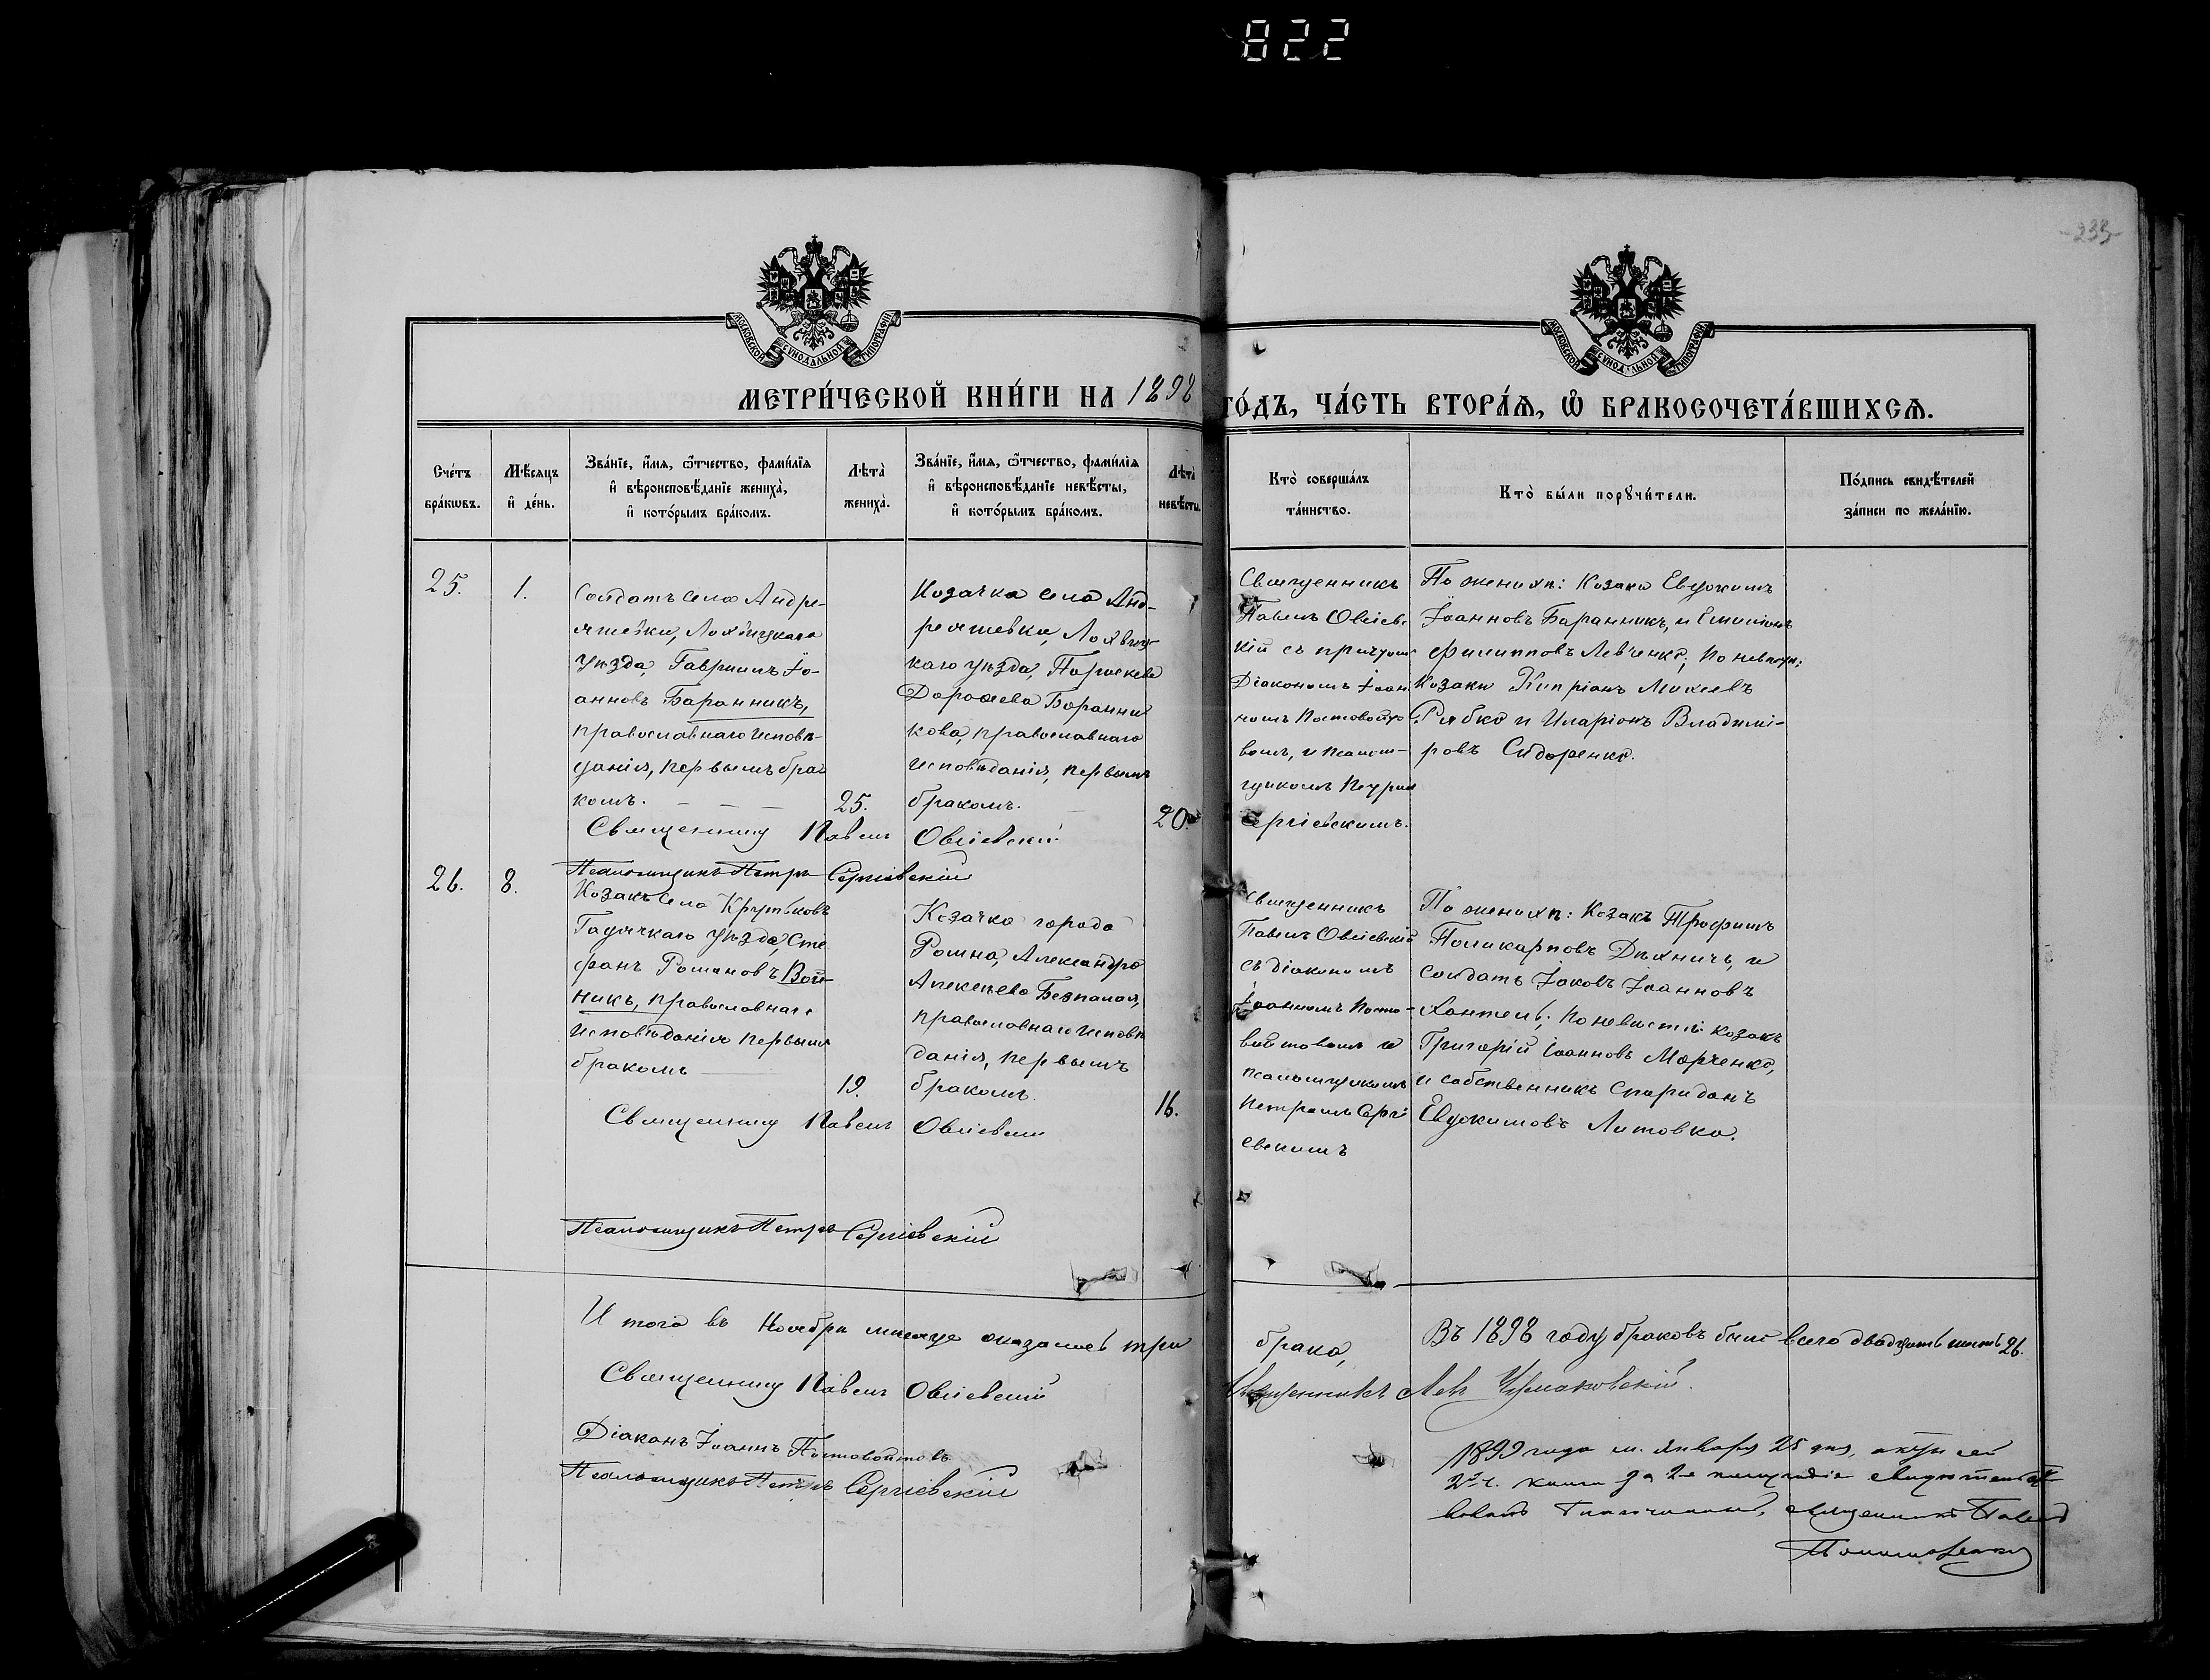 822
233
МОСКОВСКОЙ СѴНОДАЛЬНОЙ ТИПОГРАФІИ
МОСКОВСКОЙ СѴНОДАЛЬНОЙ ТИПОГРАФІИ
МЕТРИ́ЧЕСКОЙ КНИ́ГИ НА 1898 ГО́ДЪ, ЧА́СТЬ ВТОРА́Ѧ, Ѽ БРАКОСОЧЕТА́ВШИХСѦ.
Сче́тъ
бра́кѡвъ.
Мѣ́сяцъ
и҆ де́нь.
Зва́нїе, и҆́мѧ, ѻ҆́тчество, фами́лїѧ
и҆ вѣроисповѣ́данїе жениха̀,
и҆ кото́рымъ бра́комъ.
Лѣта̀
жениха̀.
Зва́нїе, и҆́мѧ, ѻ҆́тчество, фами́лїѧ
и҆ вѣроисповѣ́данїе невѣ́сты,
и҆ кото́рымъ бра́комъ.
Лѣта̀
невѣ́сты.
Кто̀ соверша́лъ
та́инство.
Кто̀ бы́ли порꙋчи́тели.
По́дпись свидѣ́телей
за́писи по жела́нїю.
25.
1.
Солдатъ села Андре-
яшевки, Лохвицкаго
уѣзда, Гавриилъ Іо-
анновъ Баранникъ,
православнаго исповѣ-
данія, первымъ бра-
комъ.
25.
Козачка села Анд-
реяшевки, Лохвиц-
каго уѣзда, Параскева
Дорофеева Баранни
кова, православнаго
исповѣданія, первымъ
бракомъ.
20.
Священникъ
Павелъ Овсіевс
кій съ причтомъ
Діакономъ Іоан
номъ Постовойто
вымъ, и псалом-
щикомъ Петромъ
Сергіевскимъ.
По женихѣ: Козаки Евдокимъ
Іоанновъ Баранникъ, и Симеонъ
Филипповъ Левченко; по невѣстѣ:
Козаки Кипріанъ Михеевъ
Рябко и Иларіонъ Владимі-
ровъ Сидоренко.
Священникъ Павелъ Овсіевскій
Псаломщикъ Петръ Сергіевскій
26.
8.
Козакъ села Крутьковъ
Гадячкаго уѣзда, Сте
фанъ Романовъ Вой-
никъ, православнаго
исповѣданія первымъ
бракомъ
19.
Козачка города
Ромна, Александра
Алексѣева Безпалая,
православнаго исповѣ
данія, первымъ
бракомъ.
16.
Священникъ
Павелъ Овсіевскій
съ діакономъ
Іоанномъ Посто-
войтовымъ и
псаломщикомъ
Петромъ Сергі
евскимъ
По женихѣ: Козакъ Трофимъ
Поликарповъ Дѣхничъ, и
солдатъ Іаковъ Іоанновъ
Хантель; по невѣстѣ: козакъ
Григорій Іоанновъ Марченко,
и собственникъ Спиридонъ
Евдокимовъ Литовка.
Священникъ Павелъ Овсіевскій
Псаломщикъ Петръ Сергіевскій
Итого въ Ноябрѣ мѣсяцѣ оказалось три брака,
Священникъ Павелъ Овсіевскій
Діаконъ Іоаннъ Постовойтовъ
Псаломщикъ Петръ Сергіевскій
Въ 1898 году браковъ было всего двадцать шесть 26.
Священникъ Левъ Чумаковскій.
1899 года м. января 25 дня, актъ сей
2й ч. книги за 2-е полугодіе свидѣтельст-
вовалъ Благочинный, священникъ Павелъ